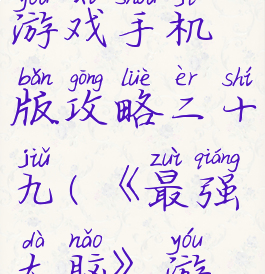 yóu xì shǒu jī
游戏手机
bǎn gōng lüè èr shí
版攻略二十
jiǔ zuì qiáng
九(《最强
dà nǎo yóu
大脑》游